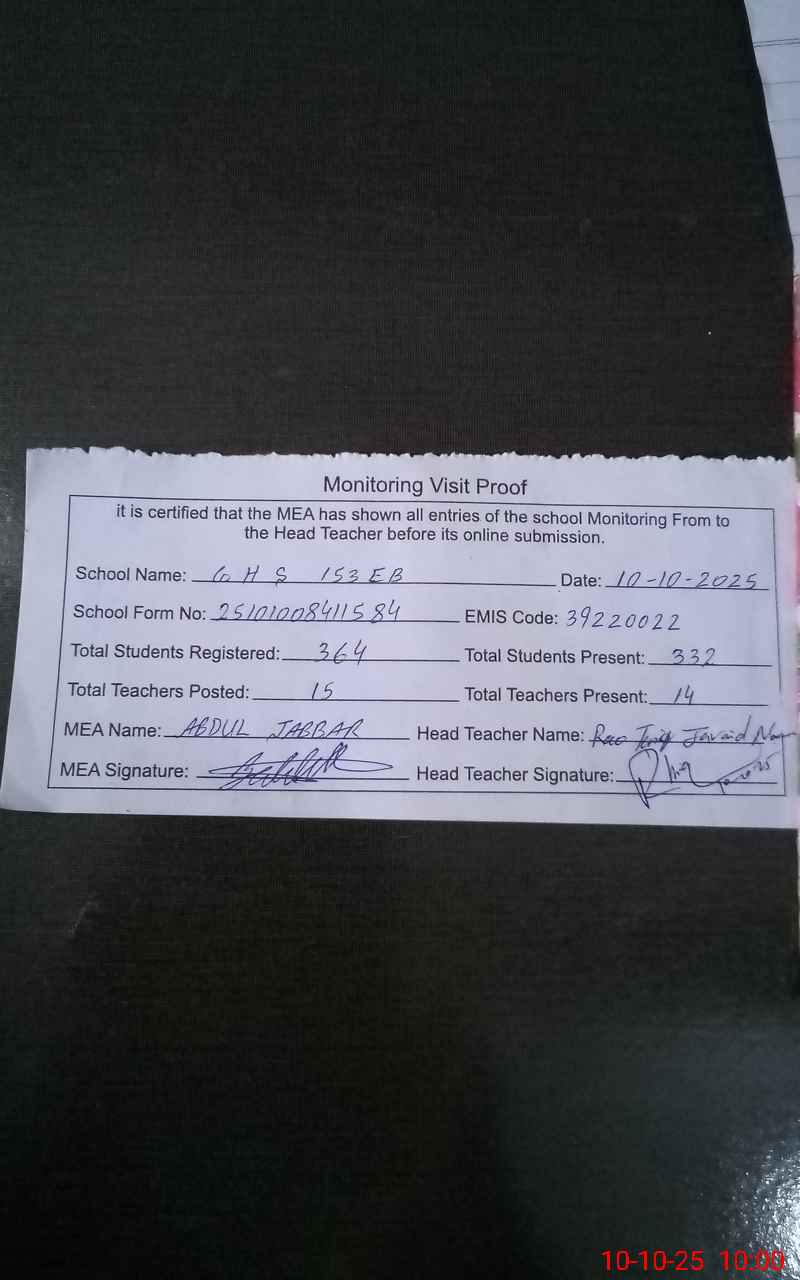 Monitoring Visit Proof
it is certified that the MEA has shown all entries of the school Monitoring From to
the Head Teacher before its online submission.
School Name: G H S 153 EB Date: 10-10-2025
School Form No: 25101008411584 EMIS Code: 39220022
Total Students Registered: 364 Total Students Present: 332
Total Teachers Posted: 15 Total Teachers Present: 14
MEA Name: ABDUL JABBAR Head Teacher Name: Rao Tariq Javaid
MEA Signature: Head Teacher Signature:
10-10-25 10:00